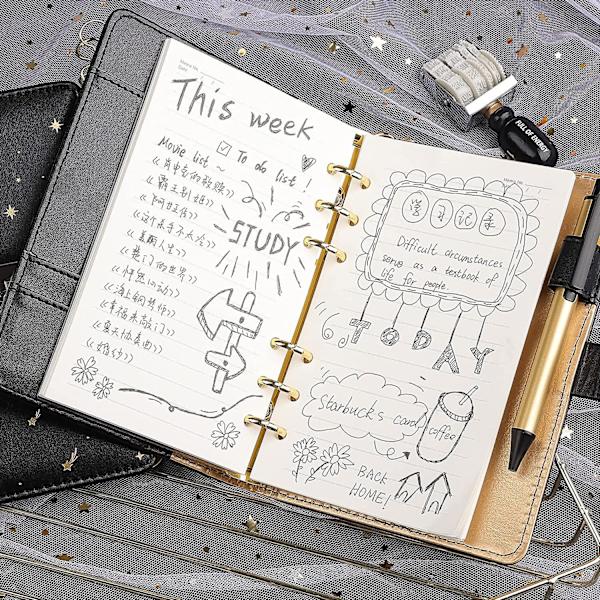 This week
Movie list ~
☑ To do list !
《肖申克的救赎》
《霸王别姬》
《阿甘正传》
《这个杀手不太冷》
《美丽人生》
《楚门的世界》
《怦然心动》
《海上钢琴师》
《幸福来敲门》
《婚纱》
STUDY
学习记录
Difficult circumstances
serve as a textbook of
life for people.
TODAY
Starbucks card
coffee
BACK
HOME!
FULL OF ENERGY